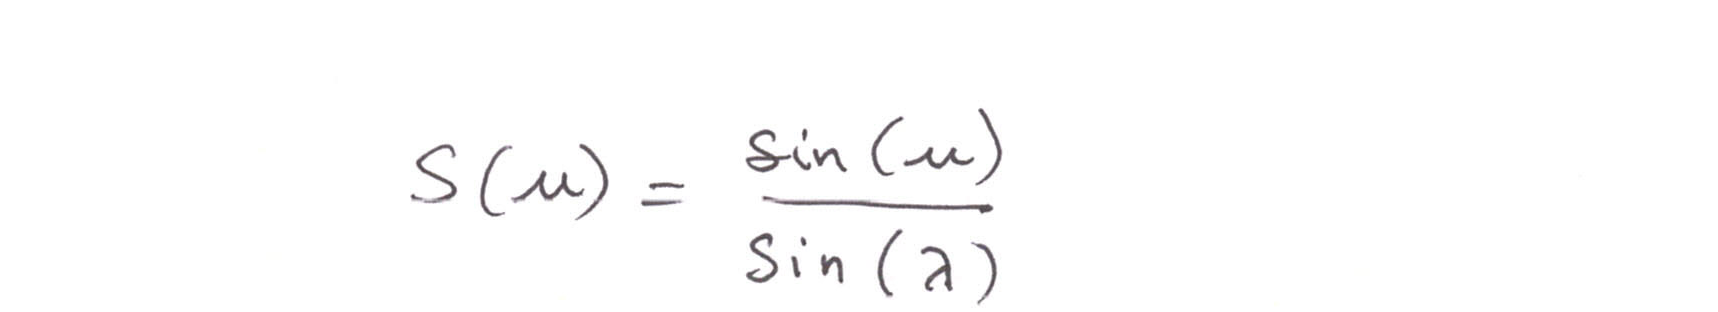 S(u) = sin(u) / sin(λ)